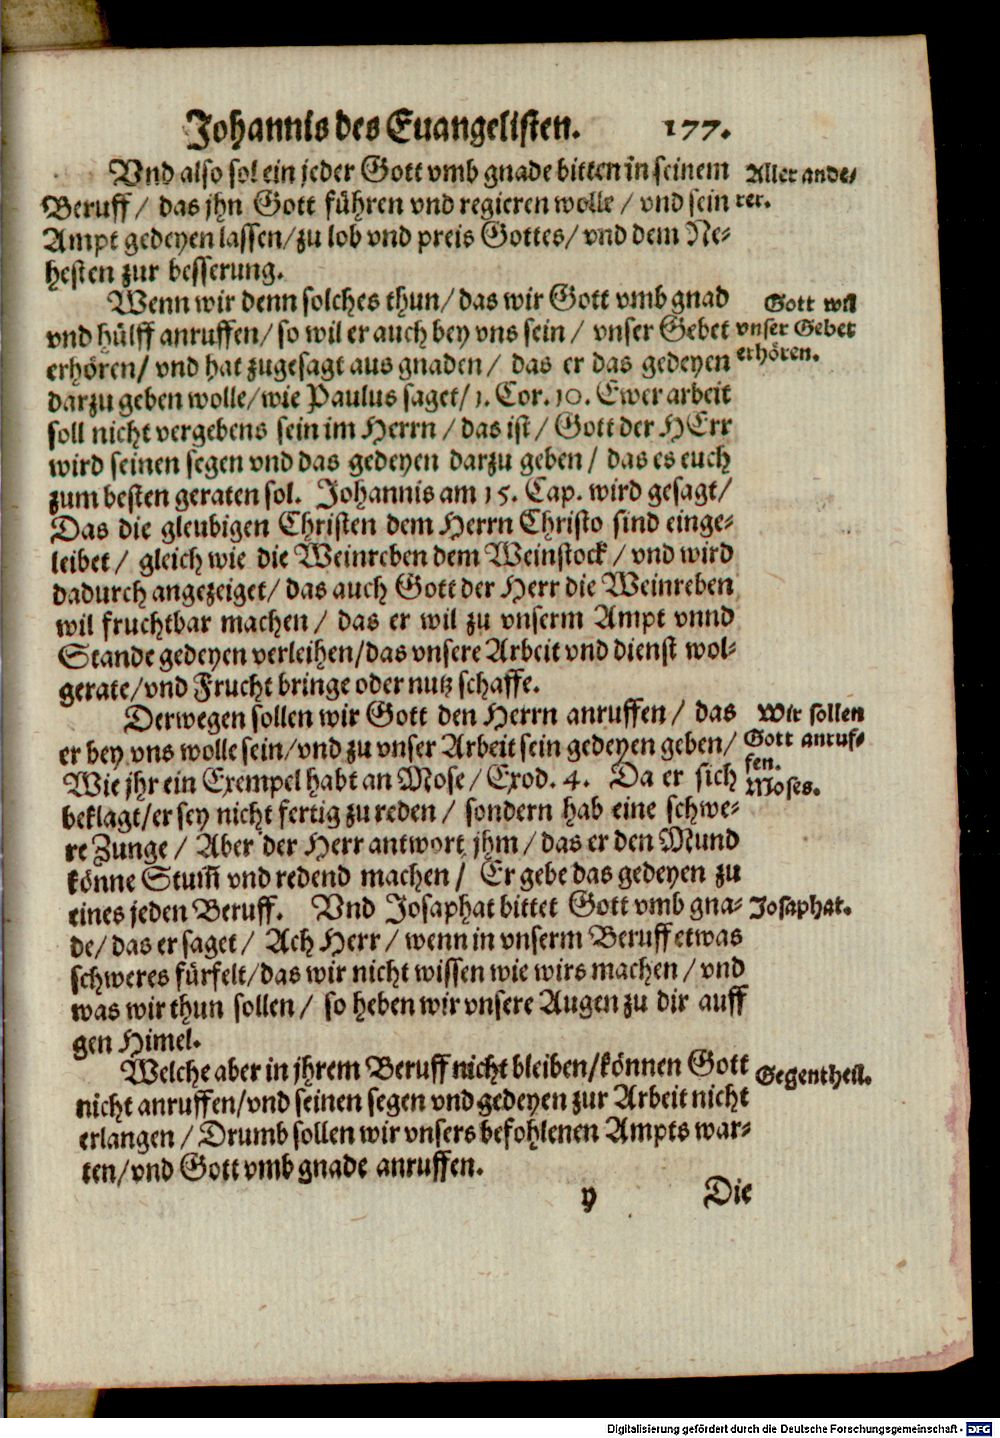 Johannis des Euangelisten. 177.
Vnd also sol ein jeder Gott vmb gnade bitten in seinem
Beruff / das jhn Gott führen vnd regieren wolle / vnd sein
Ampt gedeyen lassen/zu lob vnd preis Gottes/ vnd dem Ne-
hesten zur besserung.
Aller ande/
rer.
Wenn wir denn solches thun/das wir Gott vmb gnad
vnd hülff anruffen/ so wil er auch bey vns sein / vnser Gebet
erhören/ vnd hat zugesagt aus gnaden / das er das gedeyen
darzu geben wolle/wie Paulus saget/ 1. Cor. 10. Ewer arbeit
soll nicht vergebens sein im Herrn / das ist / Gott der HErr
wird seinen segen vnd das gedeyen darzu geben / das es euch
zum besten geraten sol. Johannis am 15. Cap. wird gesagt/
Das die gleubigen Christen dem Herrn Christo sind einge-
leibet / gleich wie die Weinreben dem Weinstock / vnd wird
dadurch angezeiget/ das auch Gott der Herr die Weinreben
wil fruchtbar machen / das er wil zu vnserm Ampt vnnd
Stande gedeyen verleihen/das vnsere Arbeit vnd dienst wol-
gerate/vnd Frucht bringe oder nutz schaffe.
Gott wil
vnser Gebet
erhören.
Derwegen sollen wir Gott den Herrn anruffen / das
er bey vns wolle sein/vnd zu vnser Arbeit sein gedeyen geben/
Wie jhr ein Exempel habt an Mose / Exod. 4. Da er sich
beklagt/er sey nicht fertig zu reden / sondern hab eine schwe-
re Zunge / Aber der Herr antwort jhm / das er den Mund
könne Stum̃ vnd redend machen / Er gebe das gedeyen zu
eines jeden Beruff. Vnd Josaphat bittet Gott vmb gna-
de/ das er saget / Ach Herr / wenn in vnserm Beruff etwas
schweres fürfelt/das wir nicht wissen wie wirs machen / vnd
was wir thun sollen / so heben wir vnsere Augen zu dir auff
gen Himel.
Wir sollen
Gott anruf-
fen.
Moses.
Josaphat.
Welche aber in jhrem Beruff nicht bleiben/können Gott
nicht anruffen/vnd seinen segen vnd gedeyen zur Arbeit nicht
erlangen / Drumb sollen wir vnsers befohlenen Ampts war-
ten/vnd Gott vmb gnade anruffen.
Gegentheil.
y Die
Digitalisierung gefördert durch die Deutsche Forschungsgemeinschaft - DFG